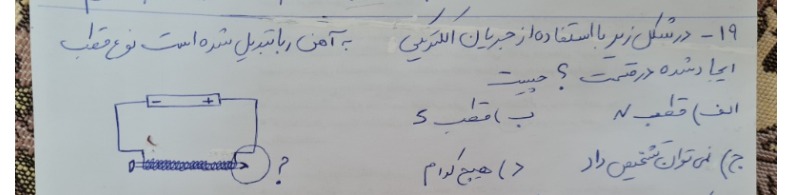 ۱۹- در شکل زیر با استفاده از جریان الکتریکی به آهن ربا تبدیل شده است نوع قطب
ایجاد شده در قسمت ؟ چیست
الف) قطب N ب) قطب S
ج) نمی توان تشخیص داد د) هیچ کدام
- +
?